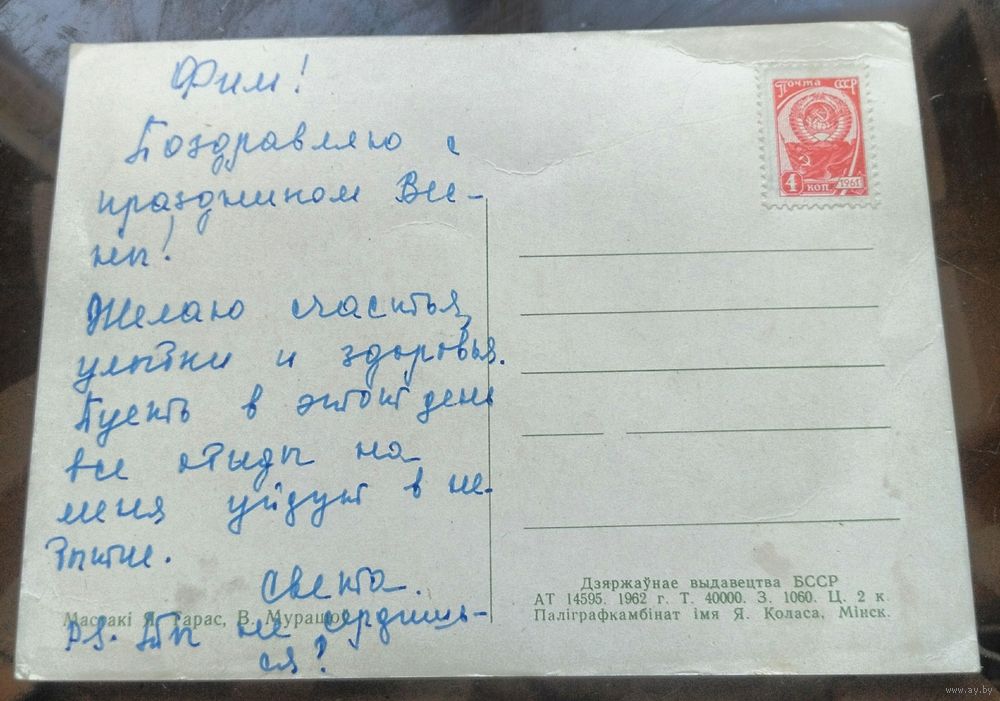 Фим!
Поздравляю с
праздником Вес-
ны!
Желаю счастья,
улыбки и здоровья.
Пусть в этот день
все обиды на
меня уйдут в не-
бытие.
Света.
P.S. Ты не сердишь-
ся?
Почта СССР
4 коп 1961
Мастакі Я. Тарас, В. Мурашо
Дзяржаўнае выдавецтва БССР
АТ 14595. 1962 г. Т. 40000. З. 1060. Ц. 2 к.
Паліграфкамбінат імя Я. Коласа, Мінск.
www.ay.by